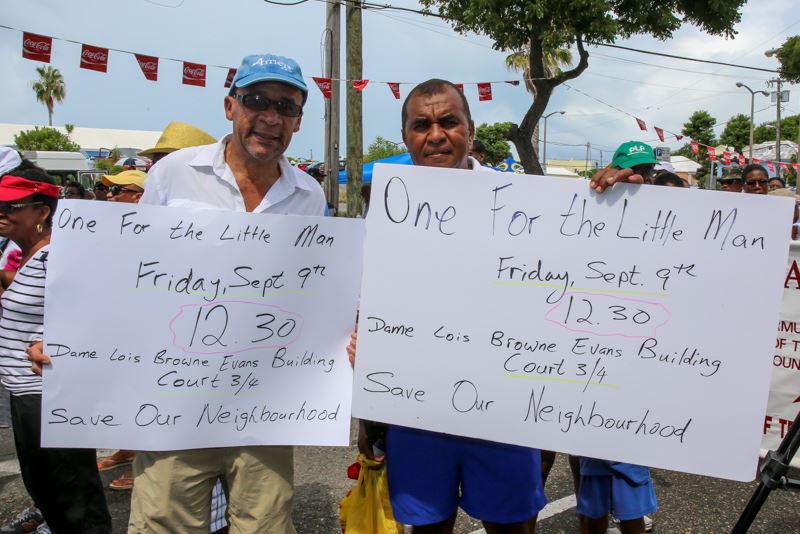 Coca-Cola
Coca-Cola
Coca-Cola
Coca-Cola
PLP
One For the Little Man
Friday, Sept 9th
12.30
Dame Lois Browne Evans Building
Court 3/4
Save Our Neighbourhood
One For the Little Man
Friday, Sept. 9th
12.30
Dame Lois Browne Evans Building
Court 3/4
Save Our Neighbourhood
OF T